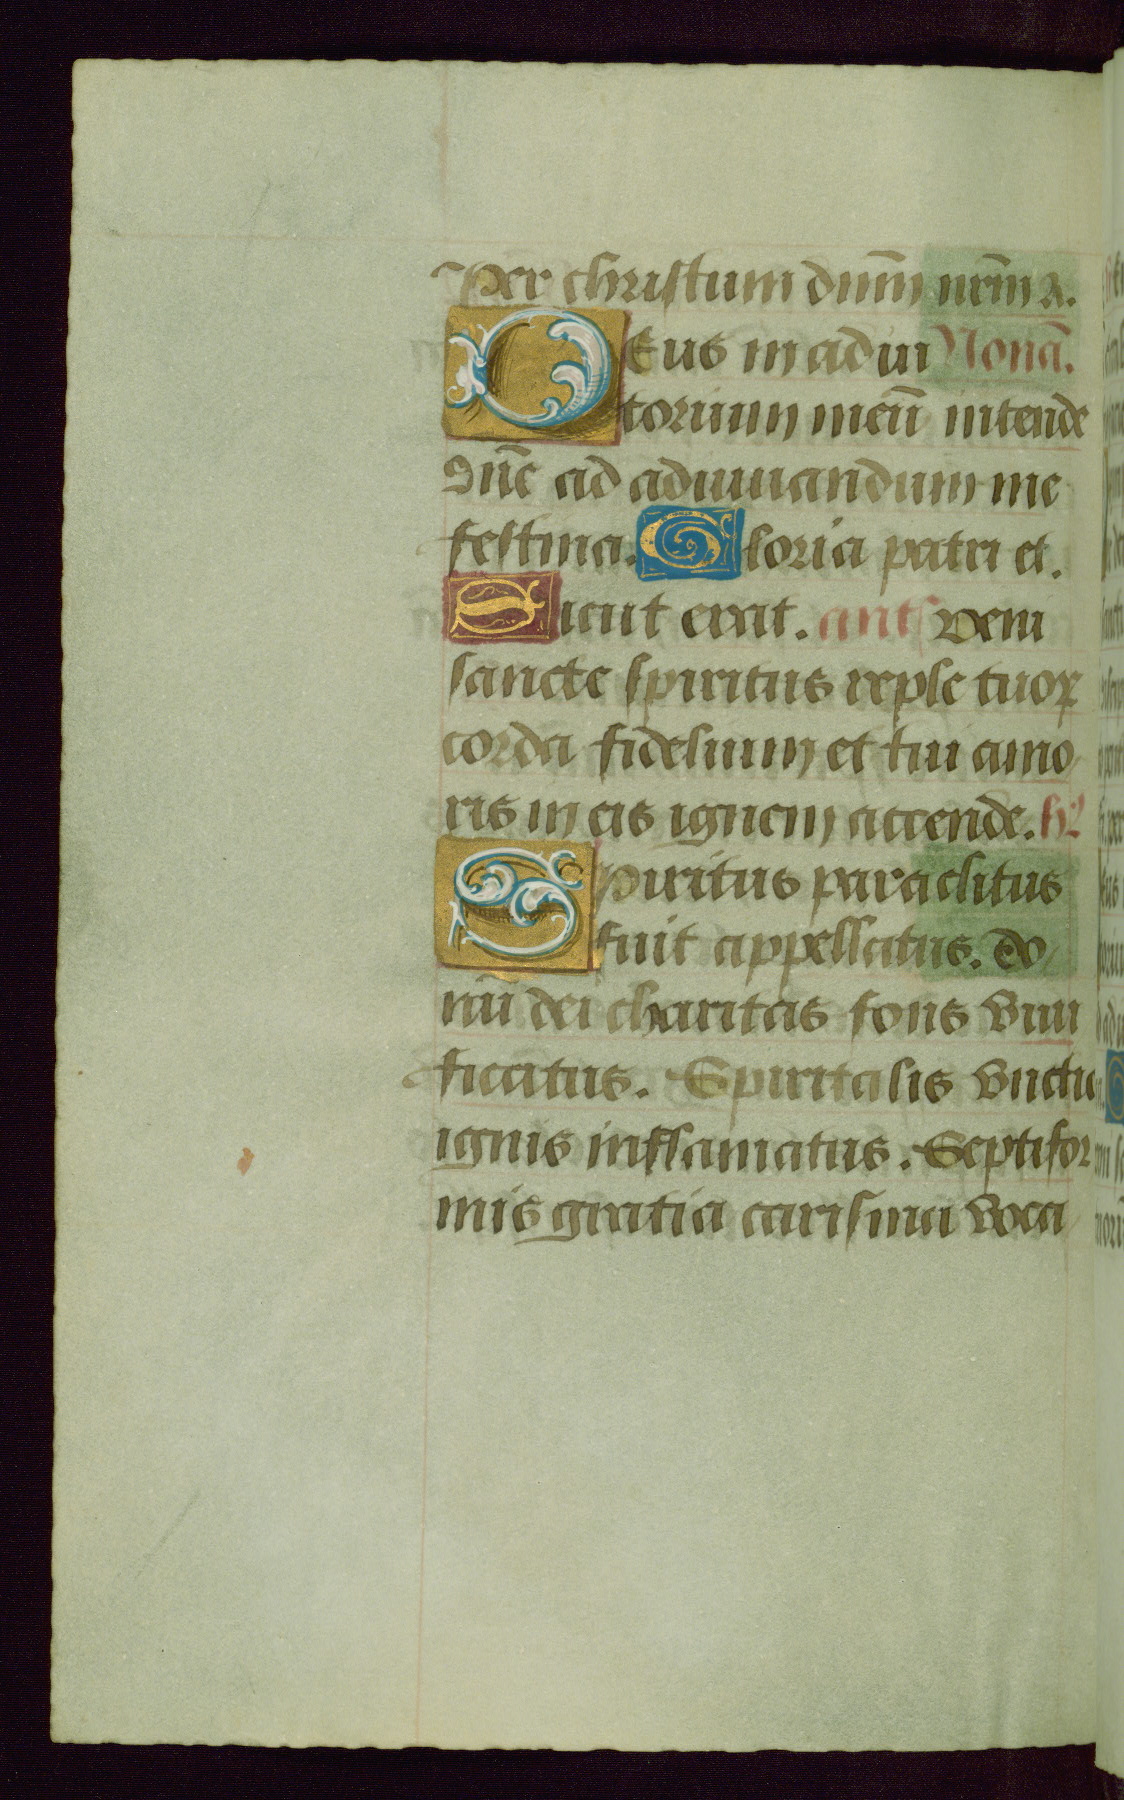 Per christum dn̄m nr̄m A.
Deus in adiu Nonā.
torium meū intende
Dn̄e ad adiuuandum me
festina. Gloria patri et.
Sicut erat. ant̄ Veni
sancte spiritus reple tuoꝝ
corda fidelium et tui amo
ris in eis ignem accende. hỹ
Spiritus paraclitus
fuit appellatus. do
nū dei charitas fons viui
ficatus. Spiritalis vnctio
ignis inflamatus. Septifor
mis gratia carisma voca